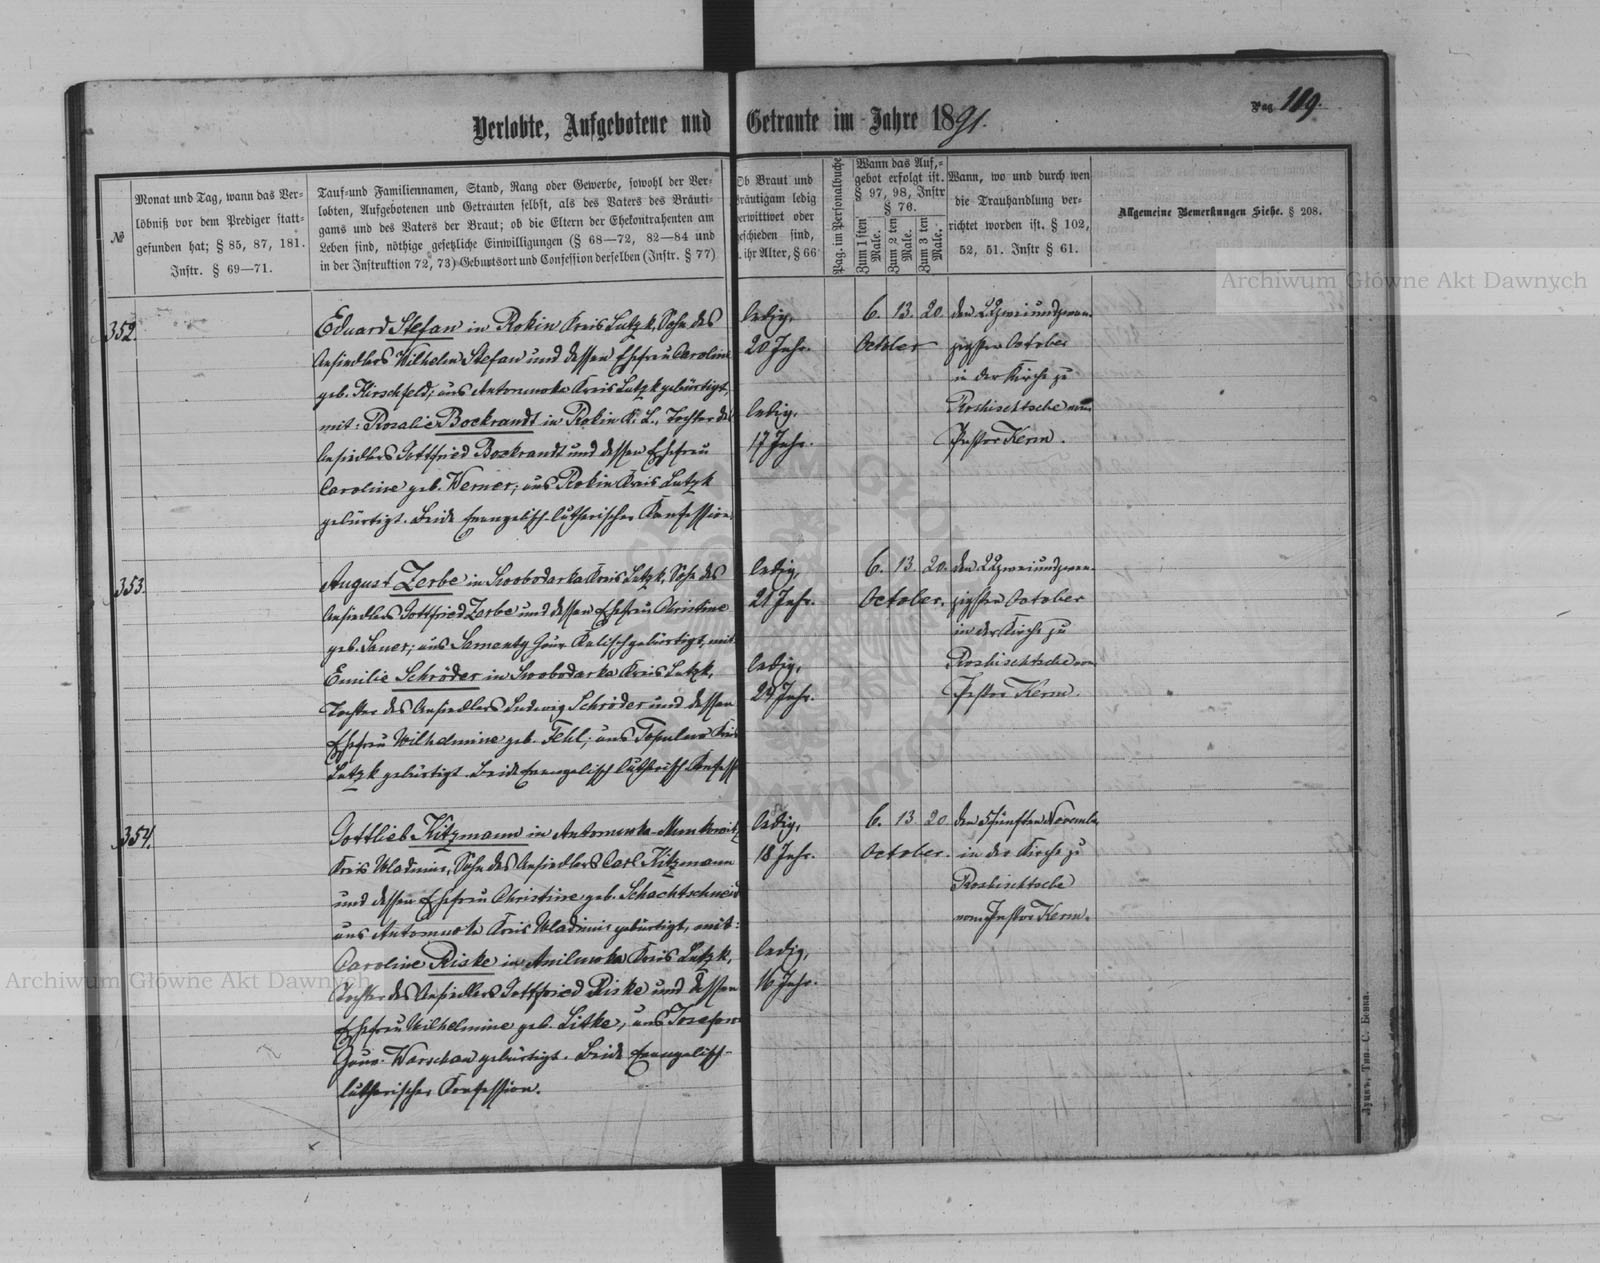 Verlobte, Aufgebotene und Getraute im Jahre 1891.
Pag 189.
№
Monat und Tag, wann das Ver-
löbniß vor dem Prediger statt-
gefunden hat; § 85, 87, 181.
Instr. § 69—71.
Tauf-und Familiennamen, Stand, Rang oder Gewerbe, sowohl der Ver-
lobten, Aufgebotenen und Getrauten selbst, als des Vaters des Bräuti-
gams und des Vaters der Braut; ob die Eltern der Ehekontrahenten am
Leben sind, nöthige gesetzliche Einwilligungen (§ 68—72, 82—84 und
in der Instruktion 72, 73) Geburtsort und Confession derselben (Instr. § 77)
Ob Braut und
Bräutigam ledig
verwittwet oder
geschieden sind,
ihr Alter, § 66
Pag. im Personalbuche
Wann das Auf-
gebot erfolgt ist.
§ 97, 98, Instr
§ 76.
Zum 1 sten Male.
Zum 2 ten Male.
Zum 3 ten Male.
Wann, wo und durch wen
die Trauhandlung ver-
richtet worden ist. § 102,
52, 51. Instr § 61.
Allgemeine Bemerkungen Siehe. § 208.
352.
Eduard Stefan in Rokin Kreis Lutzk, Sohn des
Ansiedlers Wilhelm Stefan und dessen Ehefrau Caroline
geb. Hirschfeld; aus Antonuwka Kreis Lutzk gebürtigt,
mit: Rosalie Bockrandt in Rokin K. L., Tochter des
Ansiedlers Gottfried Bockrandt und dessen Ehefrau
Caroline geb. Werner; aus Rokin Kreis Lutzk
gebürtigt. Beide Evangelisch-lutherischer Konfession.
ledig,
20 Jahr.
ledig,
17 Jahr.
6. 13. 20.
October
den 22 zweiundzwan-
zigsten October
in der Kirche zu
Roshischtsche vom
Pastor Kerm.
353.
August Zerbe in Swobodarka Kreis Lutzk, Sohn des
Ansiedlers Gottfried Zerbe und dessen Ehefrau Christine
geb. Sauer; aus Gouv. Kalisch gebürtigt, mit
Emilie Schröder in Swobodarka Kreis Lutzk,
Tochter des Ansiedlers Ludwig Schröder und dessen
Ehefrau Wilhelmine geb. Fehl; aus Topulno Kreis
Lutzk gebürtigt. Beide Evangelisch lutherisch Konfess
ledig,
21 Jahr.
ledig,
Jahr.
6. 13. 20.
October.
den 22 zweiundzwan-
zigsten October
in der Kirche zu
Roshischtsche vom
Pastor Kerm.
354.
Gottlieb Kitzmann in Antonuwka
Kreis Wladimir, Sohn des Ansiedlers Carl Kitzmann
und dessen Ehefrau Christine, geb. Schachtschneid
aus Antonuwka Kreis Wladimir gebürtigt, mit:
Caroline Riske in Aniluwka Kreis Lutzk,
Tochter des Ansiedlers Gottfried Riske und dessen
Ehefrau Wilhelmine geb. Litke, aus
Gouv. Warschau gebürtigt. Beide Evangelisch-
lutherischer Konfession.
ledig,
18 Jahr.
ledig,
16 Jahr.
6. 13 20
October.
den 5 fünften Novembe
in der Kirche zu
Roshischtsche
vom Pastor Kerm.
Луцкъ, Тип. С. Бенка.
Archiwum Główne Akt Dawnych
Archiwum Główne Akt Dawnych